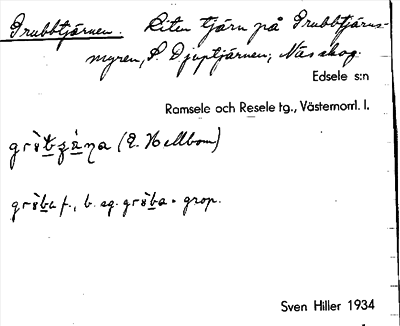 Grubbtjärnen. Liten tjärn på Grubbtjärns-
myren, S. Djuptjärnen, Nässkog.
Edsele s:n
Ramsele och Resele tg., Västernorrl. l.
(E. Hellbom)
f., b. sg. grop.
Sven Hiller 1934